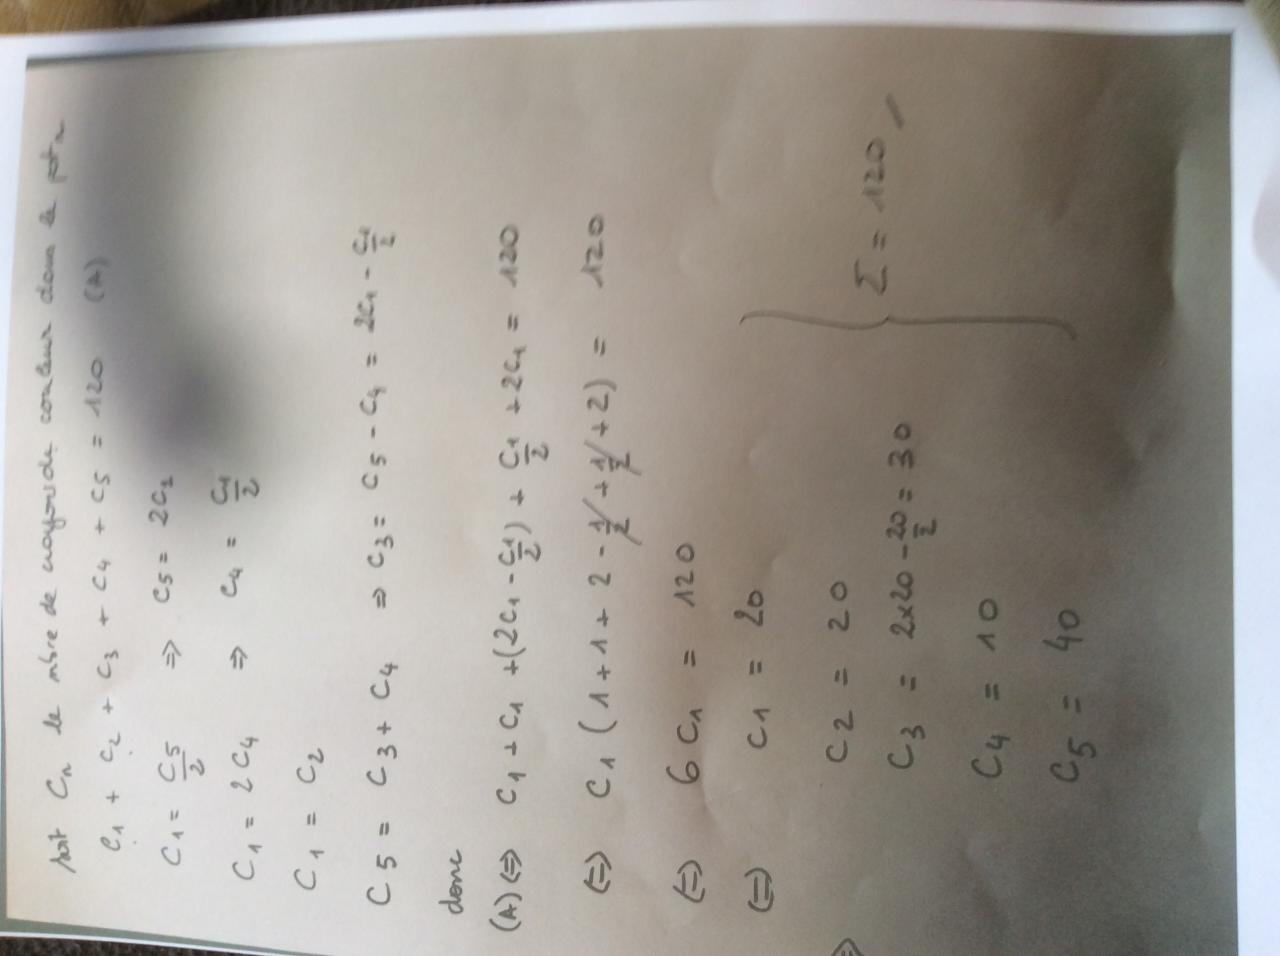 soit Cn le nbre de crayons de couleur dans le pot n
C1 + C2 + C3 + C4 + C5 = 120 (A)
C1 = C5/2 => C5 = 2C1
C1 = 2C4 => C4 = C1/2
C1 = C2
C5 = C3 + C4 => C3 = C5 - C4 = 2C1 - C1/2
donc
(A) <=> C1 + C1 + (2C1 - C1/2) + C1/2 + 2C1 = 120
<=> C1 (1 + 1 + 2 - 1/2 + 1/2 + 2) = 120
<=> 6 C1 = 120
<=> C1 = 20
=> C2 = 20
C3 = 2x20 - 20/2 = 30
Σ = 120
C4 = 10
C5 = 40